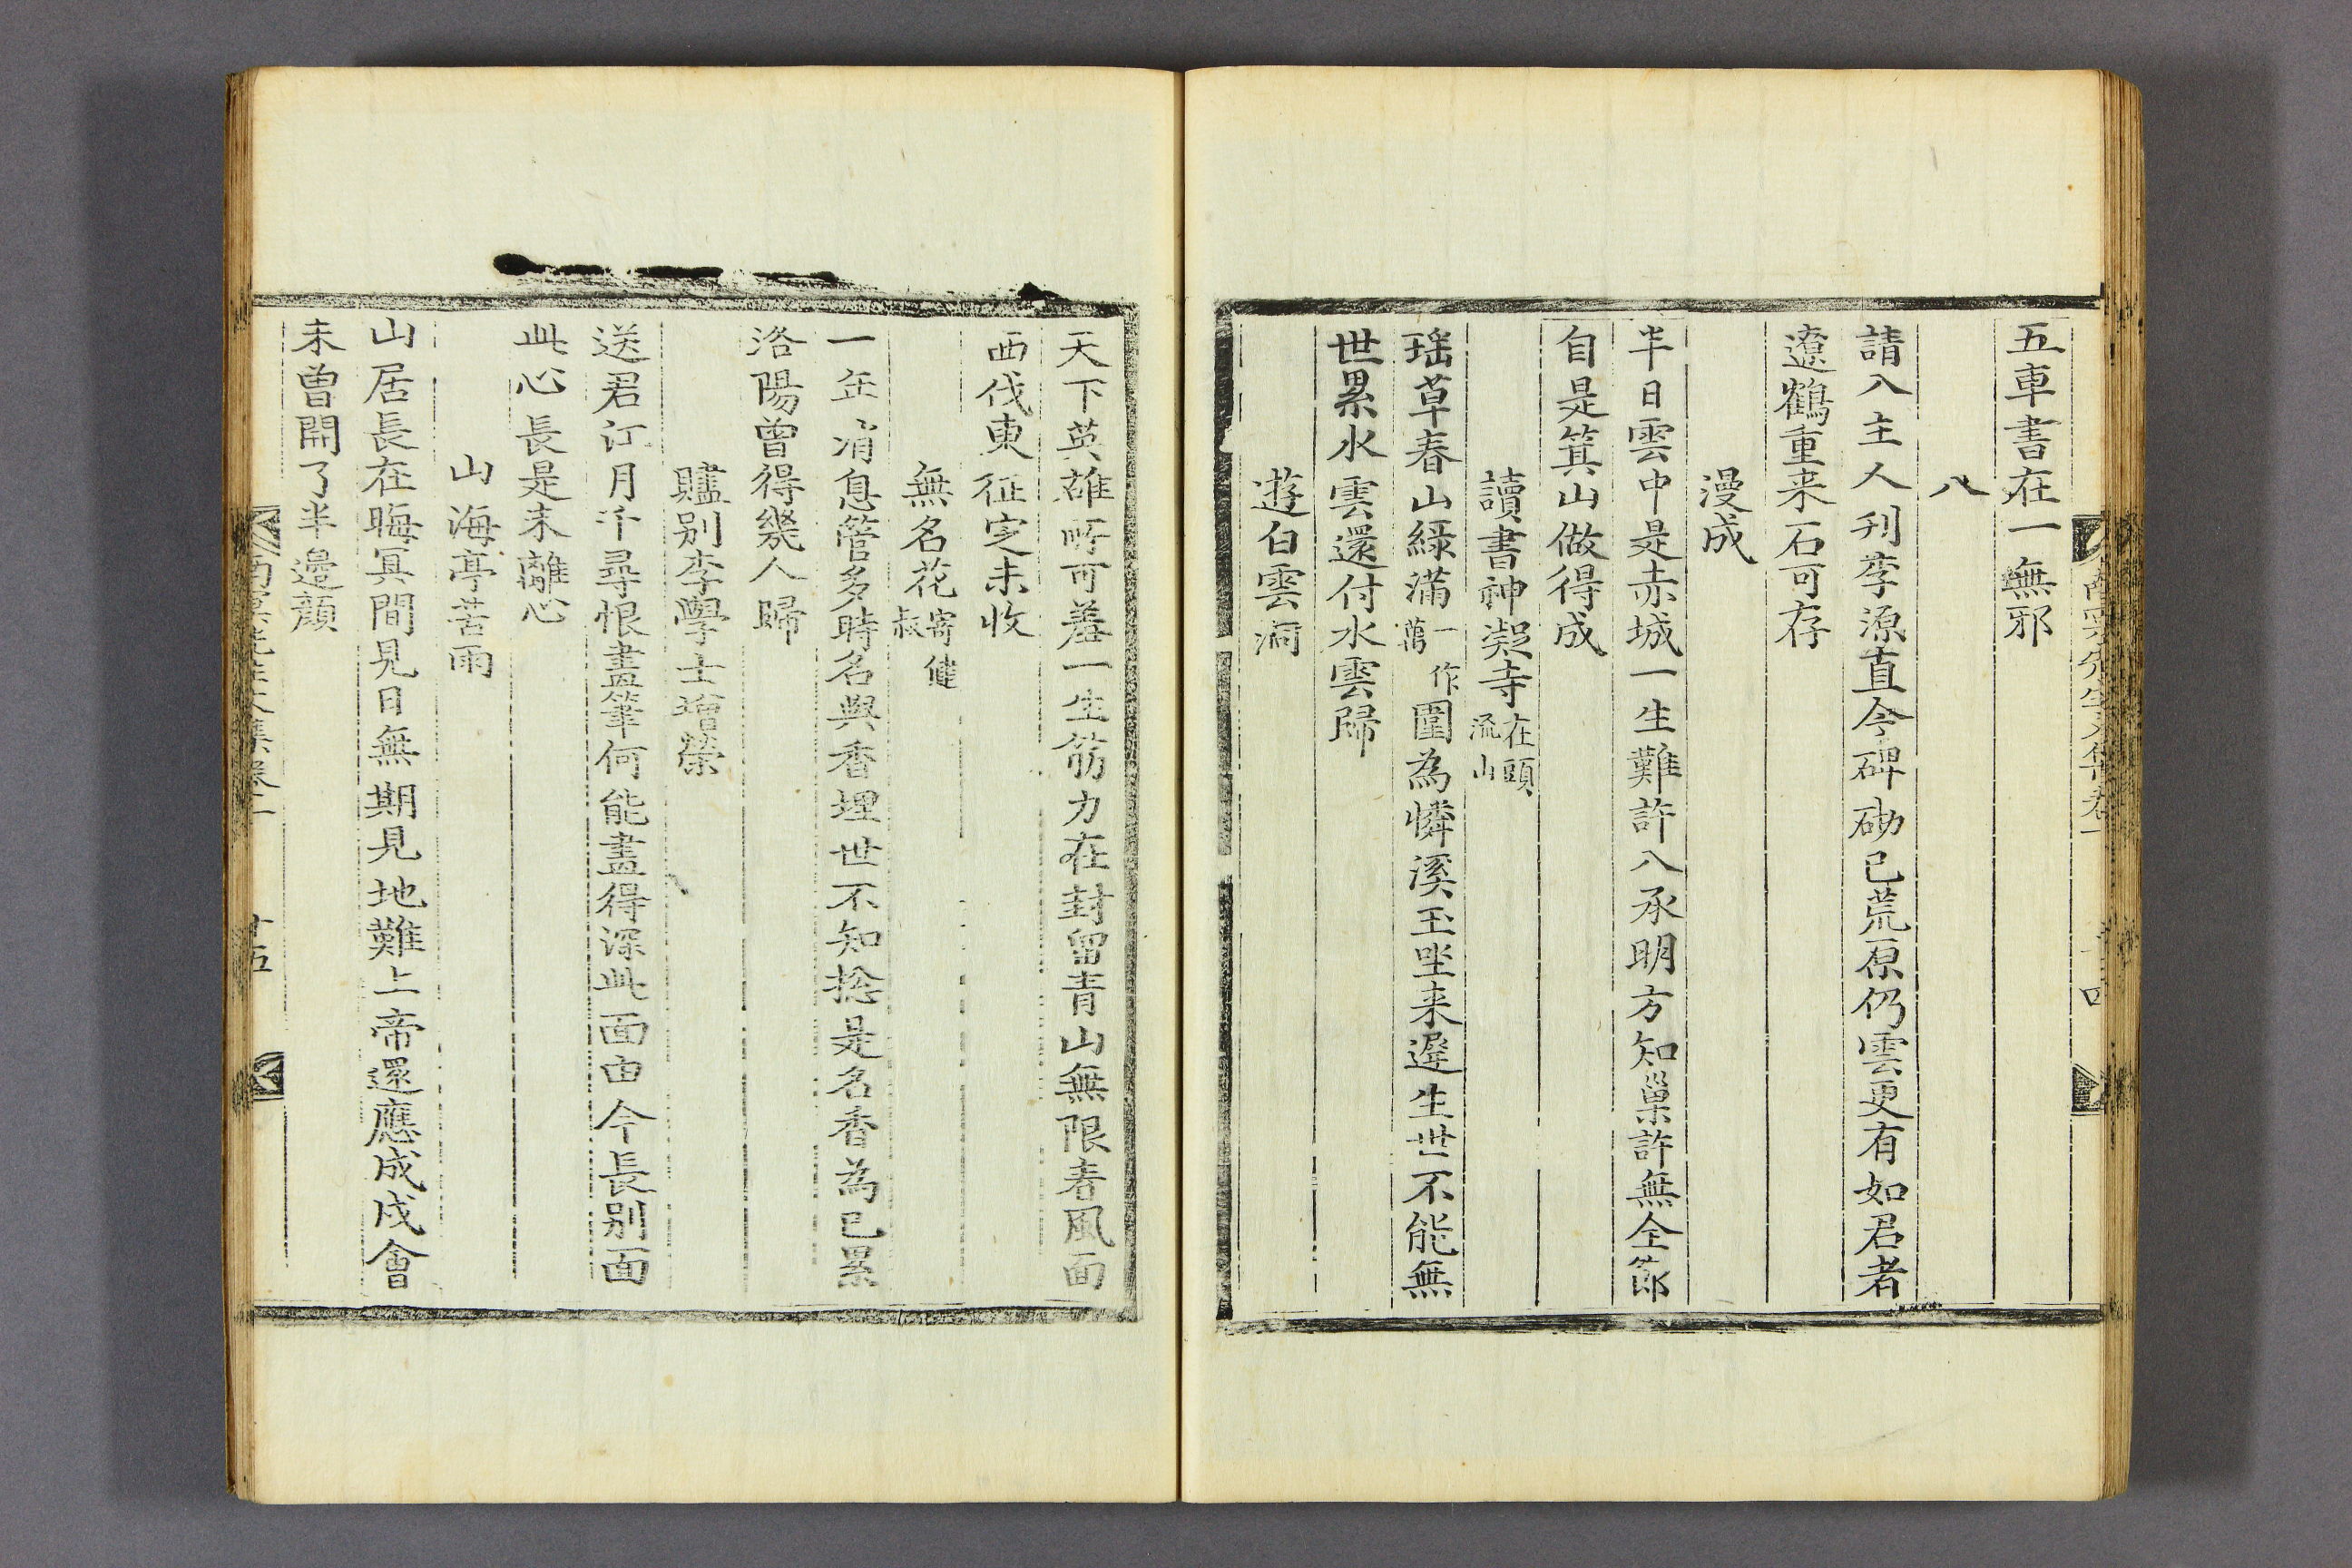 五車書在一無邪
八
請八主人刋李源直今碑砌已荒原仍雲更有如君者
遼鶴重来石可存
漫成
半日雲中是赤城一生難許八承明方知巢許無全節
自是箕山做得成
讀書神凝寺在頭流山
瑶草春山綠滿一作萬圍為憐溪玉坐来遲生世不能無
世累水雲還付水雲歸
遊白雲洞
天下英雄所可羞一生筋力在封留青山無限春風面
西伐東征定未收
無名花寄健叔
一年消息管多時名與香埋世不知捴是名香為已累
洛陽曾得幾人歸
贐別李學士增榮
送君江月千尋恨畫筆何能畫得深此面由今長別面
此心長是未離心
山海亭苦雨
山居長在晦冥間見日無期見地難上帝還應成戍會
未曾開了半邊顔
南冥先生文集卷一
十四
十五